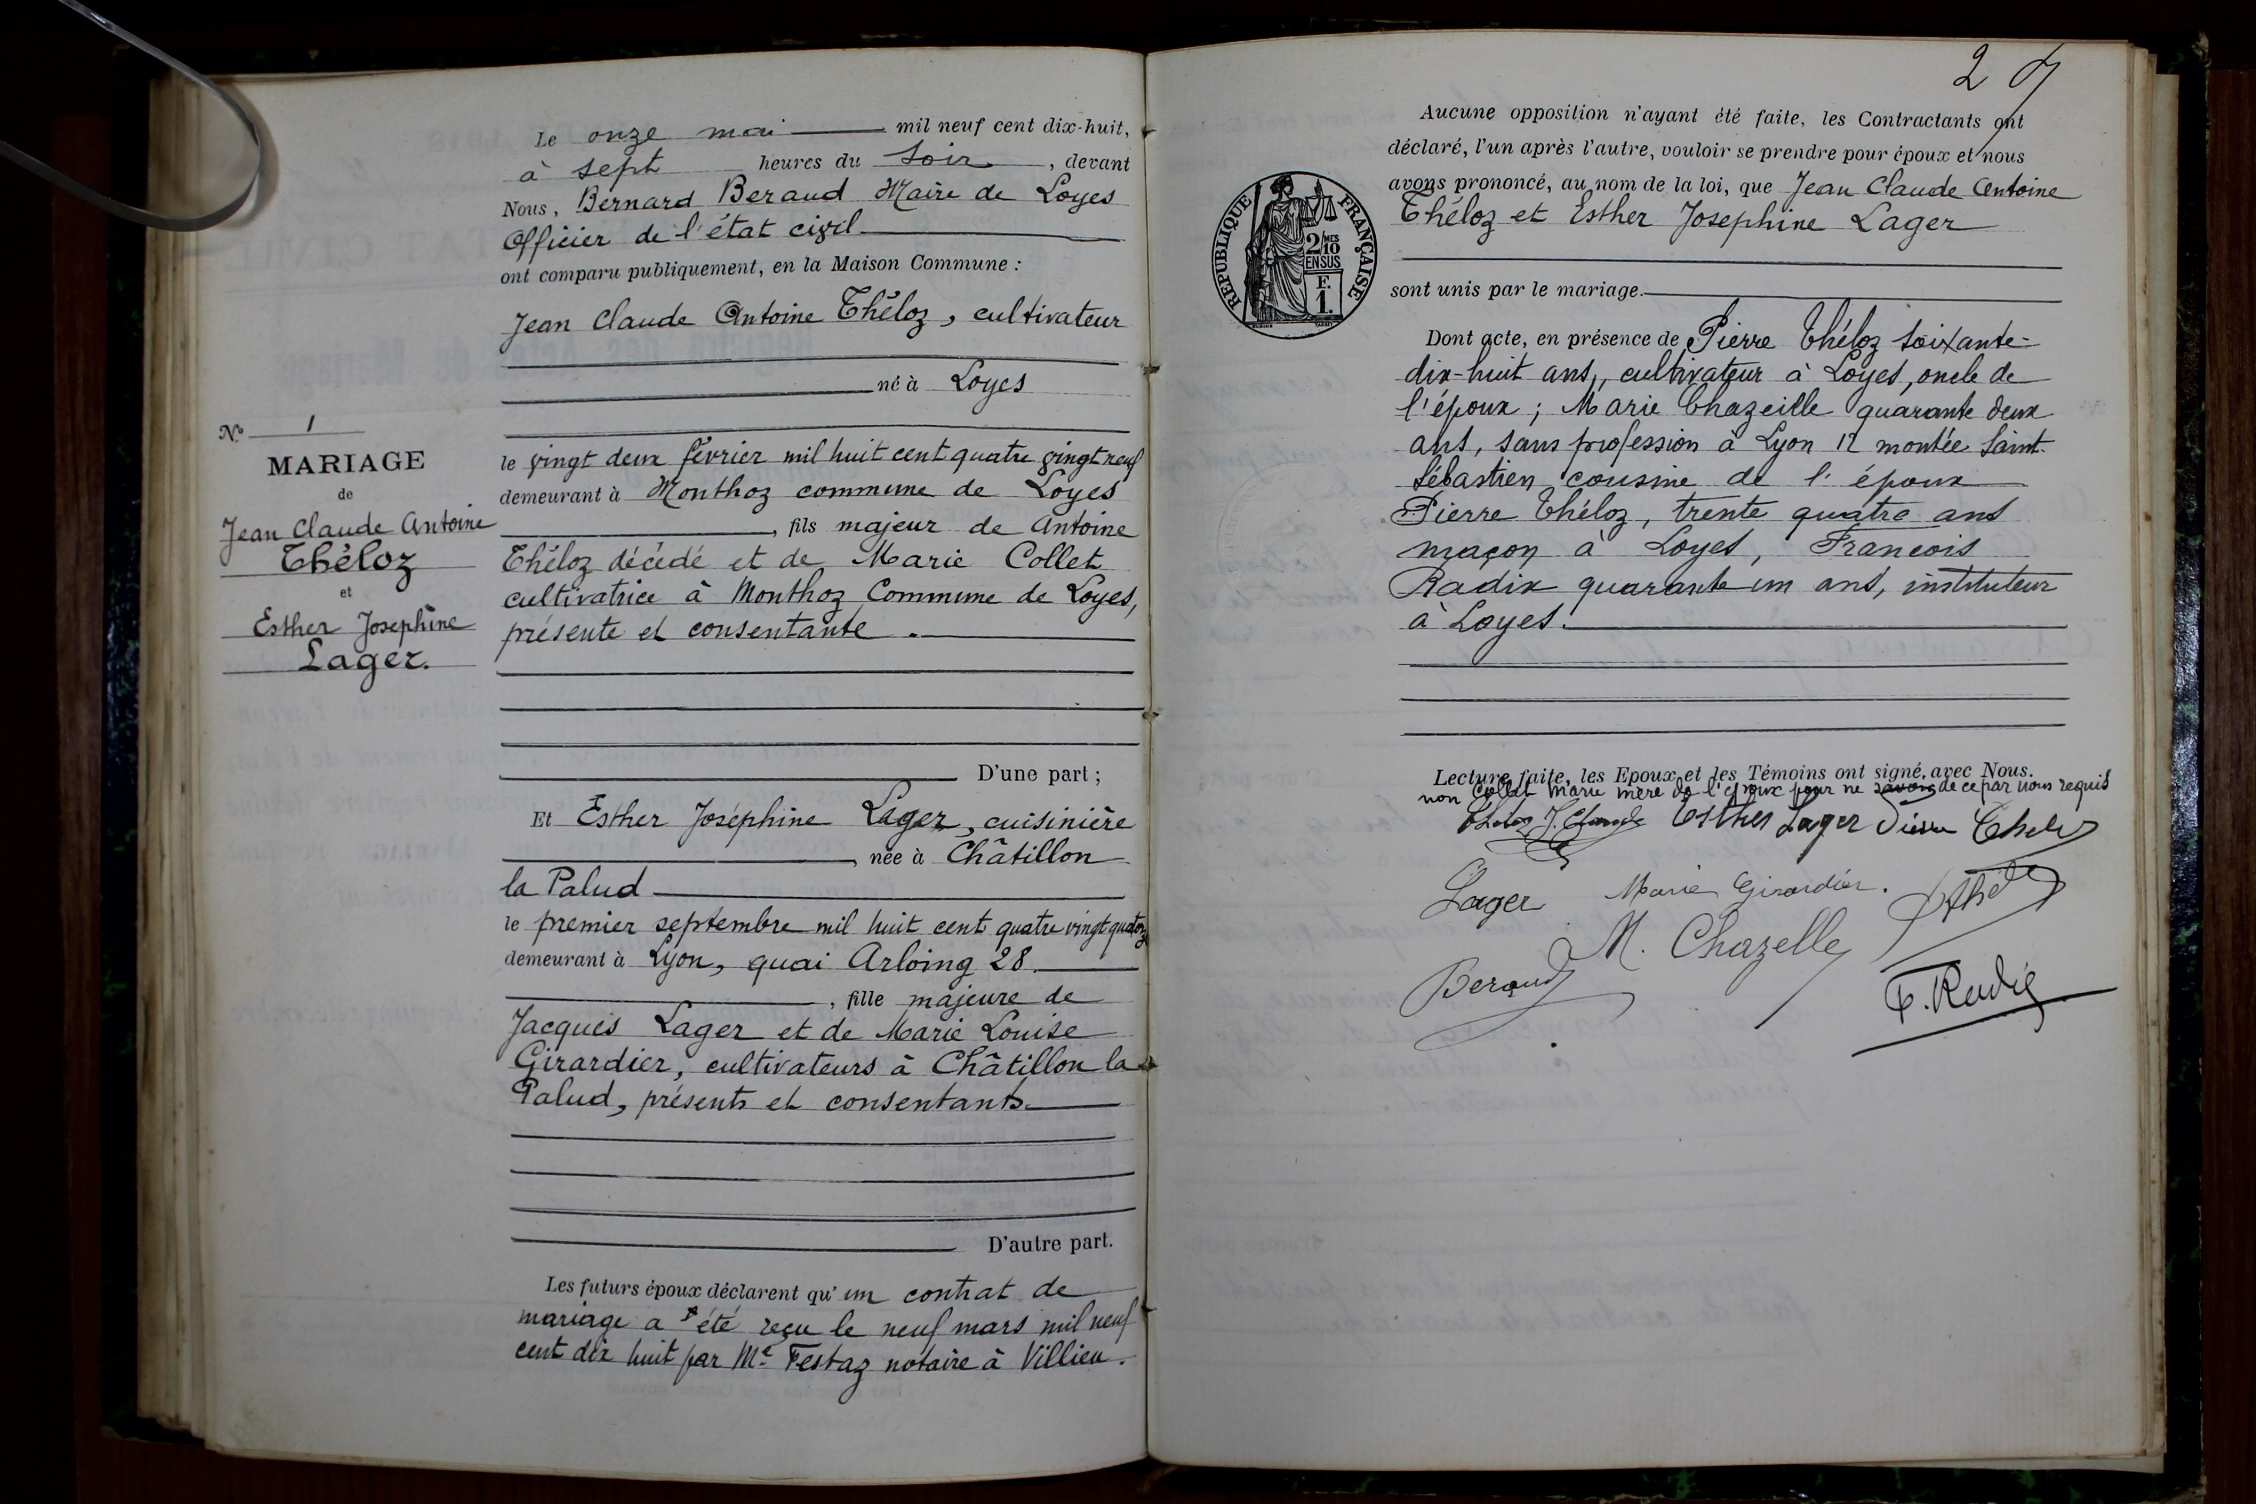 Le onze mai mil neuf cent dix-huit,
à sept heures du soir, devant
Nous, Bernard Beraud Maire de Loyes
Officier de l'état civil
ont comparu publiquement, en la Maison Commune :
Jean Claude Antoine Théloz, cultivateur
né à Loyes
le vingt deux février mil huit cent quatre vingt neuf
demeurant à Monthoz commune de Loyes
, fils majeur de Antoine
Théloz décédé et de Marie Collet
cultivatrice à Monthoz Commune de Loyes,
présente et consentante.
D'une part ;
N° 1
MARIAGE
de
Jean Claude Antoine
Théloz
et
Esther Josephine
Lager.
Et Esther Joséphine Lager, cuisinière
, née à Châtillon
la Palud
le premier septembre mil huit cent quatre vingt quatorze
demeurant à Lyon, quai Arloing 28.
, fille majeure de
Jacques Lager et de Marie Louise
Girardier, cultivateurs à Châtillon la
Palud, présents et consentants.
D'autre part.
Les futurs époux déclarent qu'un contrat de
mariage a été reçu le neuf mars mil neuf
cent dix huit par Me Festaz notaire à Villieu.
2
Aucune opposition n'ayant été faite, les Contractants ont
déclaré, l'un après l'autre, vouloir se prendre pour époux et nous
avons prononcé, au nom de la loi, que Jean Claude Antoine
Théloz et Esther Josephine Lager
sont unis par le mariage.
RÉPUBLIQUE FRANÇAISE
2/10 MES
EN SUS
F.
1.
Dont acte, en présence de Pierre Théloz soixante-
dix-huit ans, cultivateur à Loyes, oncle de
l'époux ; Marie Chazeille quarante deux
ans, sans profession à Lyon 12 montée Saint-
Sébastien cousine de l'époux
Pierre Théloz, trente quatre ans
maçon à Loyes, Francois
Radix quarante un ans, instituteur
à Loyes.
Lecture faite, les Epoux et les Témoins ont signé, avec Nous.
non Collet Marie mère de l'époux pour ne savoir de ce par nous requis
Théloz J. Claude Esther Lager Pierre Théloz
Lager Marie Girardier. Théloz
M. Chazelle
Beraud
F. Radix